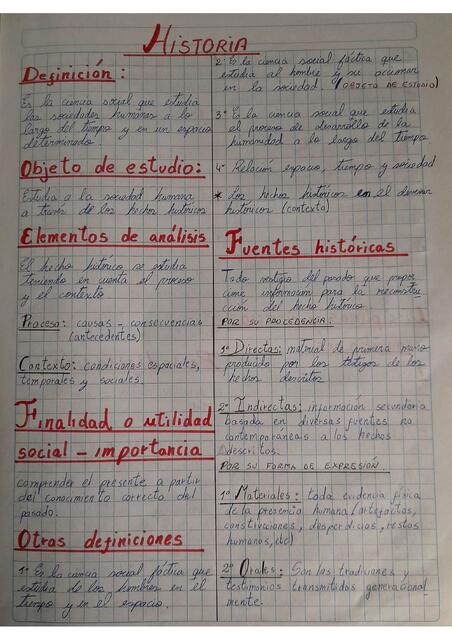 HISTORIA
Definición:
Es la ciencia social que estudia
las sociedades humanas a lo
largo del tiempo y en un espacio
determinado.
Objeto de estudio:
Estudia a la sociedad humana
a través de los hechos históricos
Elementos de análisis
El hecho histórico se estudia
teniendo en cuenta el proceso
y el contexto
Proceso: causas - consecuencias
(antecedentes)
Contexto: condiciones espaciales,
temporales y sociales.
Finalidad o utilidad
social - importancia
comprender el presente a partir
del conocimiento correcto del
pasado.
Otras definiciones
1° Es la ciencia social fáctica que
estudia de los hombres en el
tiempo y en el espacio.
2° Es la ciencia social fáctica que
estudia al hombre y su accionar
en la sociedad. (OBJETO DE ESTUDIO)
3° Es la ciencia social que estudia
el proceso de desarrollo de la
humanidad a lo largo del tiempo
4° Relación espacio, tiempo y sociedad
* Los hechos históricos en el devenir
históricos (contexto)
Fuentes históricas
Todo vestigio del pasado que propor
cione información para la reconstru
cción del hecho histórico.
POR SU PROCEDENCIA:
1° Directas: material de primera mano
producido por los testigos de los
hechos descritos.
2° Indirectas: información secundaria
basada en diversas fuentes no
contemporáneas a los hechos
descritos.
POR SU FORMA DE EXPRESIÓN
1° Materiales: toda evidencia física
de la presencia humana (artefactos,
construcciones, desperdicios, restos
humanos, etc)
2° Orales: Son las tradiciones y
testimonios transmitidos generacional
mente.